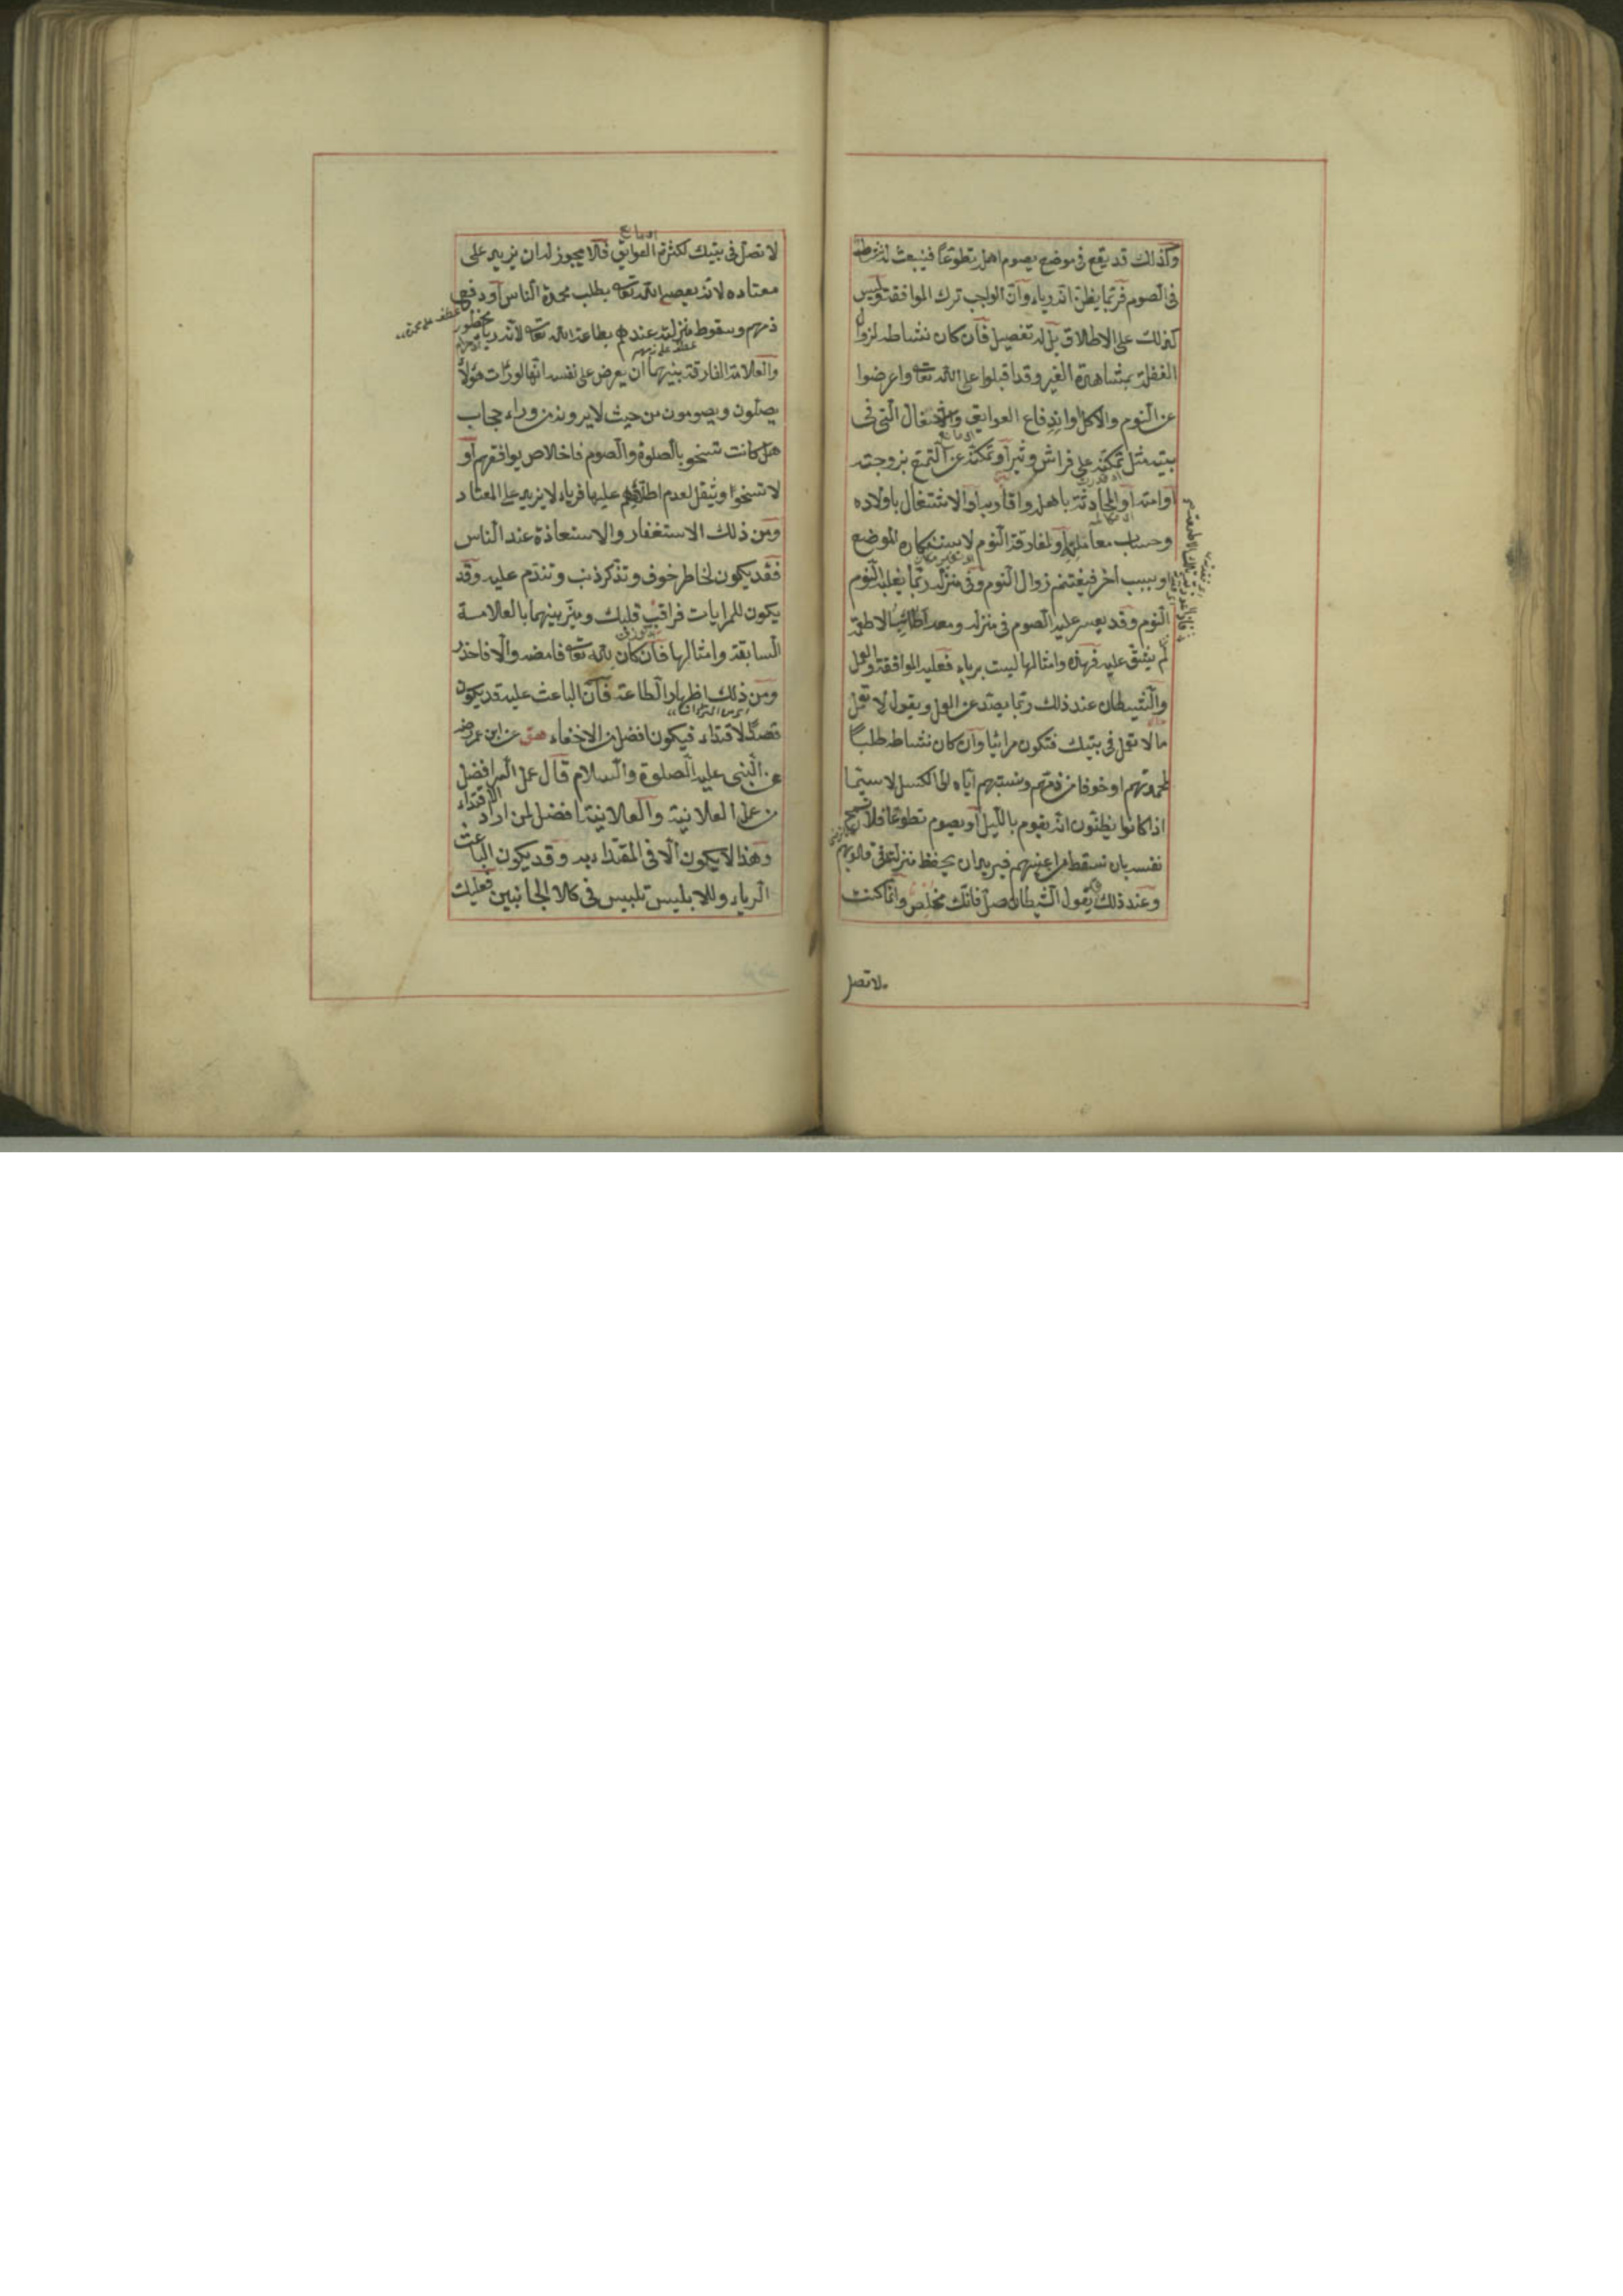 وكذلك قد يقع فى موضع يصوم اهله تطوعا فينبعث له نشاط
فى الصوم فربما يظن انه رياء وان الواجب ترك الموافقة وليس
كذلك على الاطلاق بل له تفصيل فان كان نشاطه لزوال
الغفلة بمشاهدة الغير وقد اقبلوا على الله تعا واعرضوا
عن النوم والاكل او اندفاع العوايق والاشغال التى فى
بيته مثل تمكنه على فراش وثير او تمكنه عن التمتع بزوجته
او امته او المحادثة باهله واقاربه او الاشتغال باولاده
وحساب معامليه او لمفارقة النوم لاستنكاره الموضع
او بسبب اخر فيغتنم زوال النوم وفى منزله ربما يغلبه النوم
النوم وقد يعسر عليه الصوم فى منزله ومعه اطائب الاطعمة
لم يشق عليه فهذه وامثالها ليست برياء فعليه الموافقة والعمل
والشيطان عند ذلك ربما يصد عن العمل ويقول لا تعمل
ما لا تعمل فى بيتك فتكون مرائيا وان كان نشاطه طلبا
لمحمدتهم او خوفا من ذمهم ونسبتهم اياه الى الكسل لا سيما
اذا كانوا يظنون انه يقوم بالليل او يصوم تطوعا فلا تسمح
نفسه بان تسقط من اعينهم فيريد ان يحفظ منزلته فى قلوبهم
وعند ذلك يقول الشيطان صل فانك مخلص وانما كنت
لا تصل
لا تصل فى بيتك لكثرة العوايق فلا يجوز له ان يزيد على
معتاده لانه يعصى الله تعا بطلب محمدة الناس او دفع
ذمهم وسقوط منزلته عندهم بطاعة الله تعا لانه رياء محظور
عطف على محمدة
والعلامة الفارقة بينهما ان يعرض على نفسه انها لو رأت هؤلاء
يصلون ويصومون من حيث لا يرونه من وراء حجاب
هل كانت تسخو بالصلوة والصوم فاخلاص يوافقهم او
لا تسخوا ويثقل لعدم اطلاعهم عليها فرياء لا يزيد على المعتاد
ومن ذلك الاستغفار والاستعاذة عند الناس
فقد يكون لخاطر خوف وتذكر ذنب وتندم عليه وقد
يكون للمرايات فراقب قلبك وميز بينهما بالعلامة
السابقة وامثالها فان كان لله تعا فامضه والا فاحذر
ومن ذلك اظهار الطاعة فان الباعث عليه قد يكون
قصد الاقتداء فيكون افضل من الاخفاء هق عن ابن عمر رضه
عن النبى عليه الصلوة والسلام قال عمل السر افضل
من عمل العلانية والعلانية افضل لمن اراد الاقتداء
وهذا لا يكون الا فى المقتداء به وقد يكون الباعث
الرياء وللابليس تلبيس فى كلا الجانبين فعليك